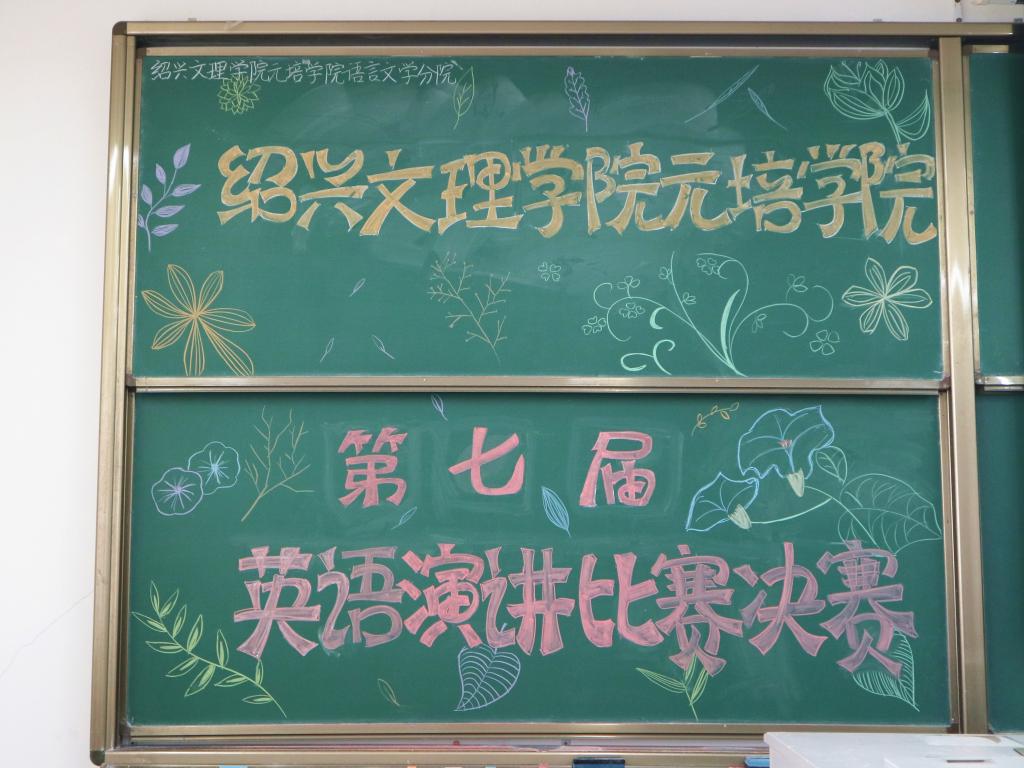 绍兴文理学院元培学院语言文学分院
绍兴文理学院元培学院
第七届
英语演讲比赛决赛